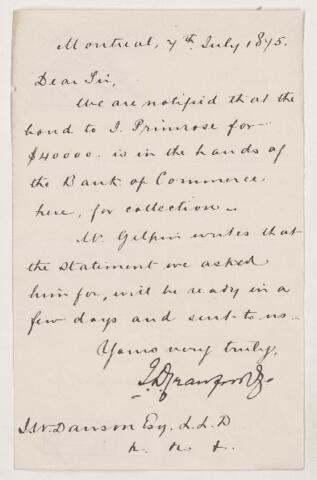 Montreal, 7th July 1875.
Dear Sir,
We are notified that the
bond to J. Primrose for
$40000. is in the hands of
the Bank of Commerce
here, for collection.
Mr. Gilpin writes that
the statement we asked
him for, will be ready in a
few days and sent to us.
Yours very truly,
J.D. Crawford &
J.W. Dawson Esq. L.L.D